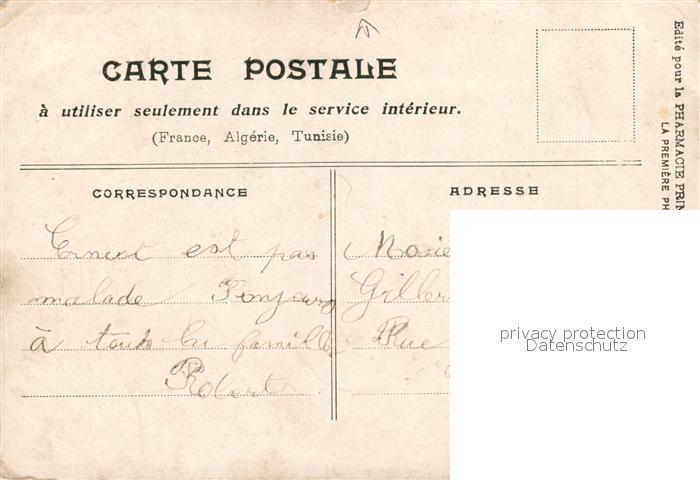 CARTE POSTALE
à utiliser seulement dans le service intérieur.
(France, Algérie, Tunisie)
Edité pour la PHARMACIE PRIN
LA PREMIÈRE PH
CORRESPONDANCE
Ernest est pas
malade Bonjour
à toute la famille
Robert
ADRESSE
Gilber
Rue
privacy protection
Datenschutz